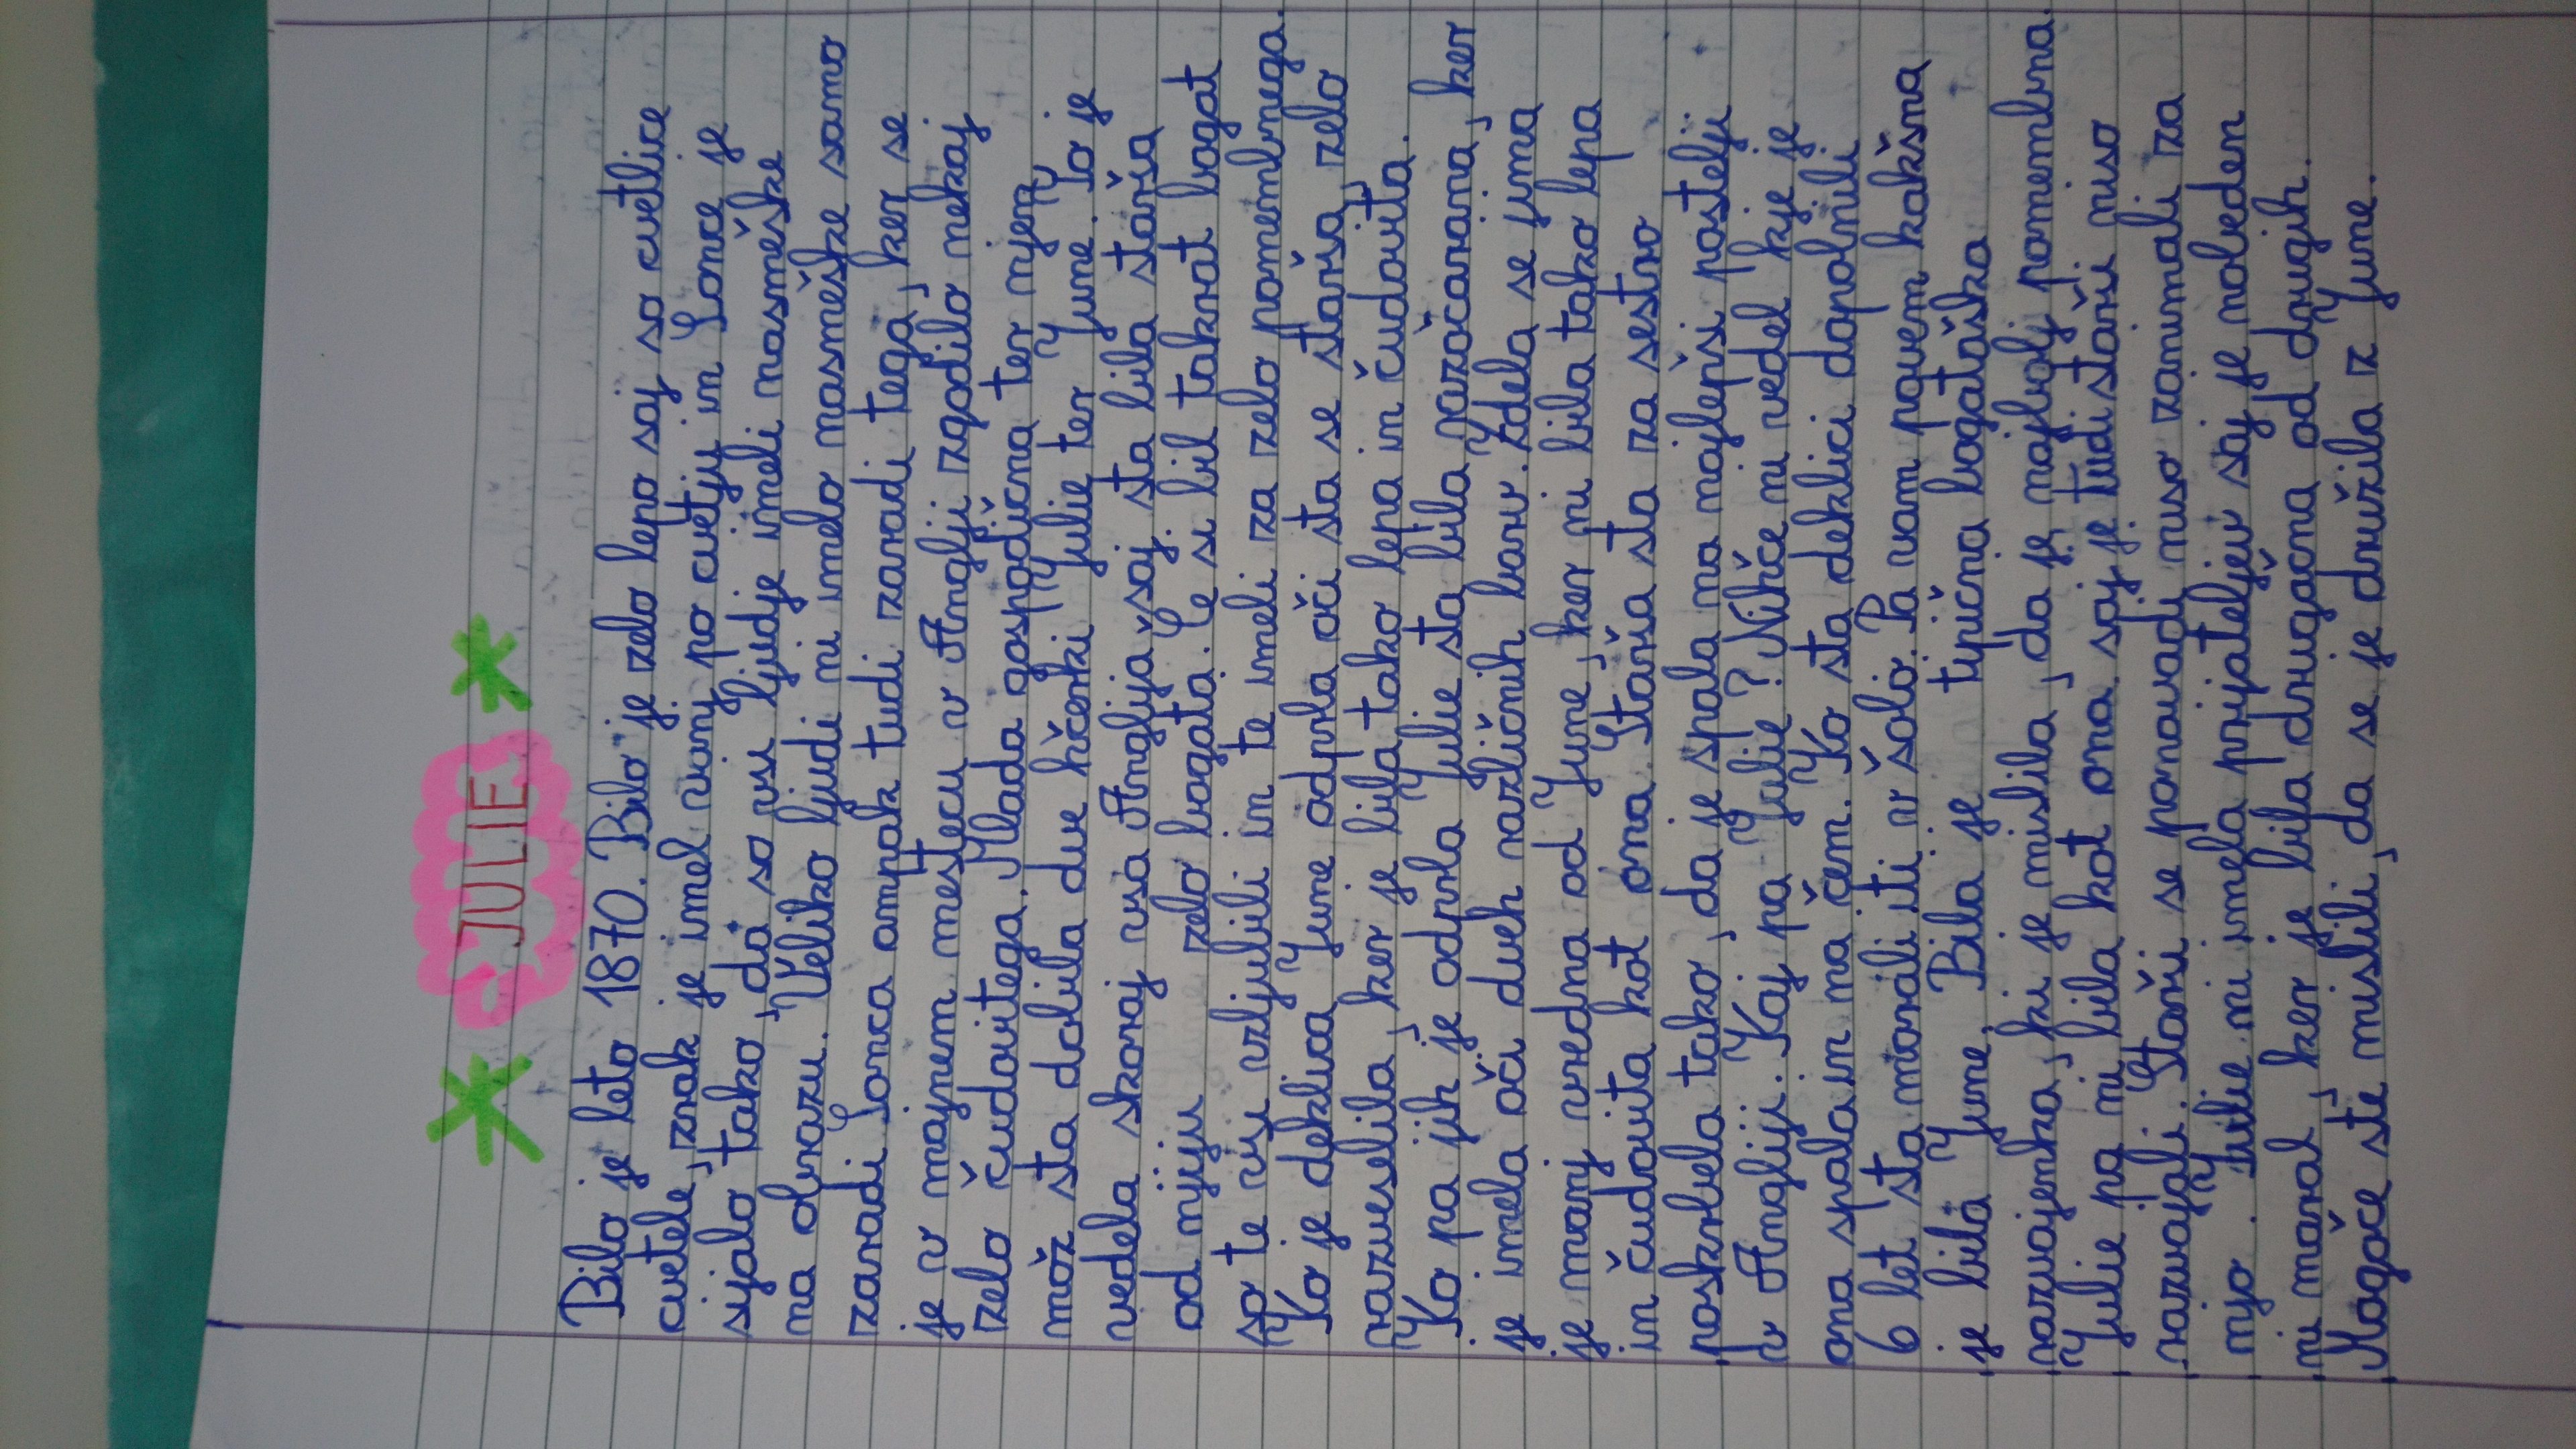 JULIE
Bilo je leto 1870. Bilo je zelo lepo saj so cvetlice
cvetele, zrak je imel vonj po cvetju in Sonce je
sijalo tako, da so vsi ljudje imeli nasmeške
na obrazu. Veliko ljudi ni imelo nasmeške samo
zaradi Sonca ampak tudi zaradi tega, ker se
je v majnem mestecu v Angliji zgodilo nekaj
zelo čudovitega. Mlada gospodična ter njen
mož sta dobila dve hčerki Julie ter June. To je
vedela skoraj vsa Anglija saj sta bila starša
od njiju zelo bogata. Če si bil takrat bogat
so te vsi vzljubili in te imeli za zelo pomembnega.
Ko je deklica June odprla oči sta se starša zelo
razveselila, ker je bila tako lepa in čudovita.
Ko pa jih je odprla Julie sta bila razočarana, ker
je imela oči dveh različnih barv. Zdela se jima
je manj vredna od June, ker ni bila tako lepa
in čudovita kot ona. Starša sta za sestro
poskrbela tako, da je spala na najlepši postelji
v Angliji. Kaj pa Julie? Nihče ni vedel kje je
ona spala in na čem. Ko sta deklici dopolnili
6 let sta morali iti v šolo. Pa vam povem kakšna
je bila June. Bila je tipična bogataška
razvajenka, ki je mislila, da je najbolj pomembna.
Julie pa ni bila kot ona saj je tudi starši niso
razvajali. Starši se ponavadi niso zanimali za
njo. Julie ni imela prijateljev saj je noleden
ni maral, ker je bila drugačna od drugih.
Mogoče ste mislili, da se je družila z June.